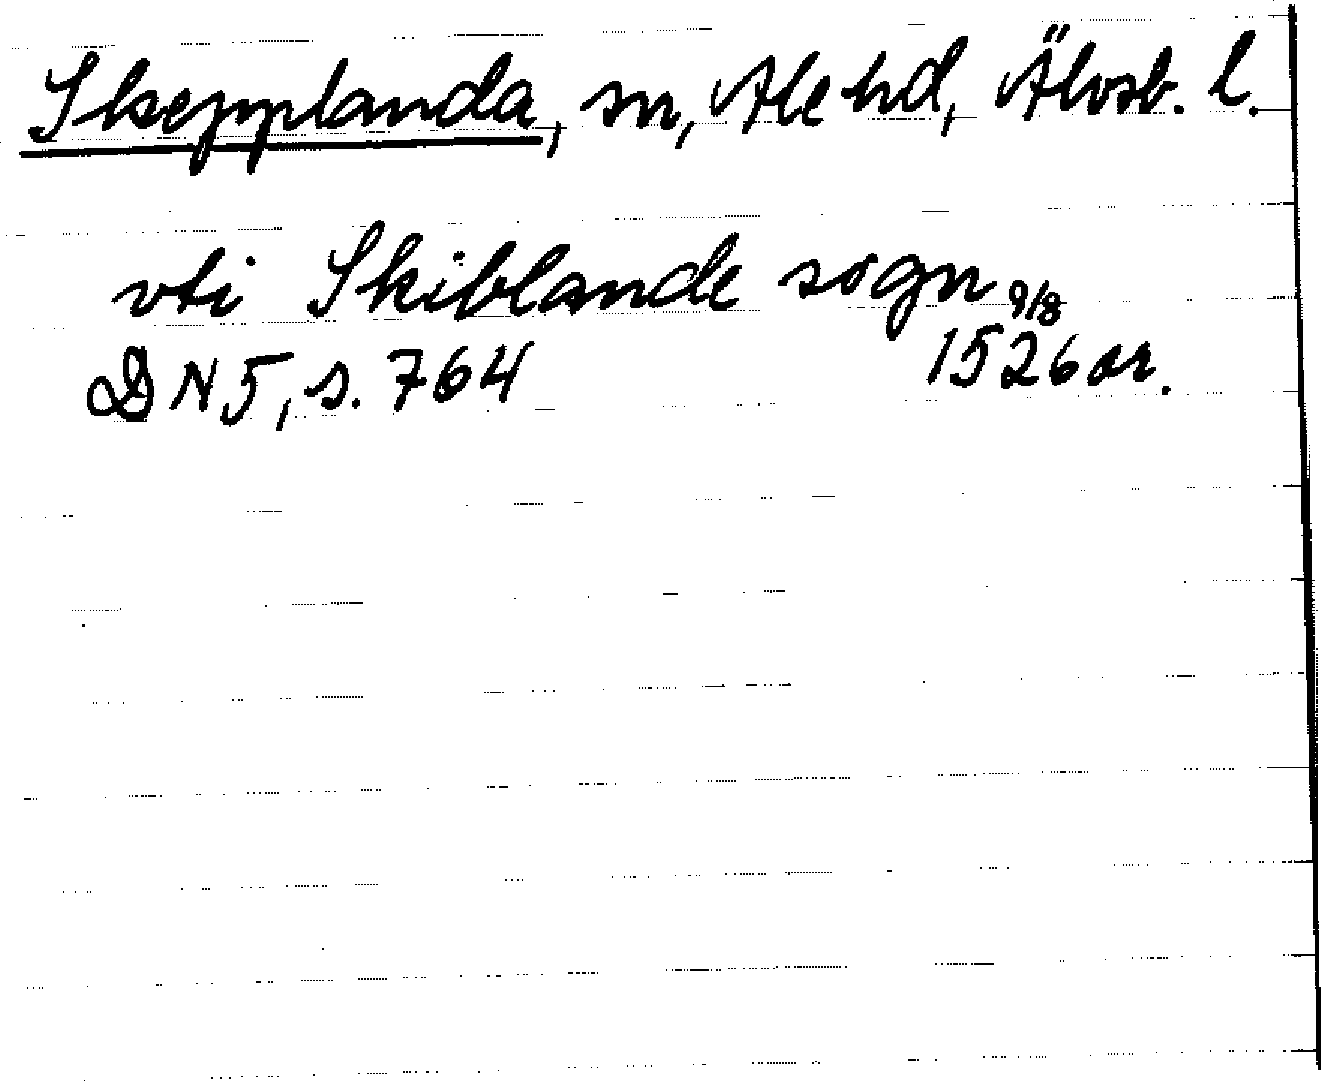 Skepplanda, sn, Ale hd, Älvsb. l.
vti Skiblande sogn 9/8
DN 5, s. 764 1526 or.